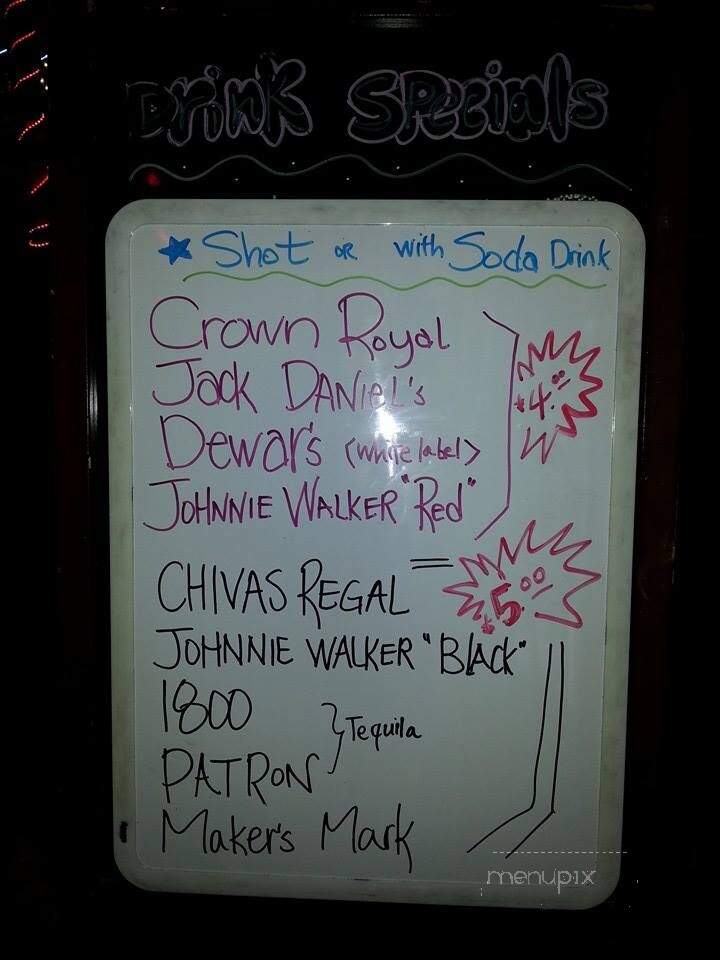 Drink Specials
★ Shot or with Soda Drink
Crown Royal
Jack Daniel's
$4.00
Dewar's (white label)
Johnnie Walker "Red"
CHIVAS REGAL
$5.00
JOHNNIE WALKER "Black"
1800
Tequila
PATRON
Maker's Mark
menupix